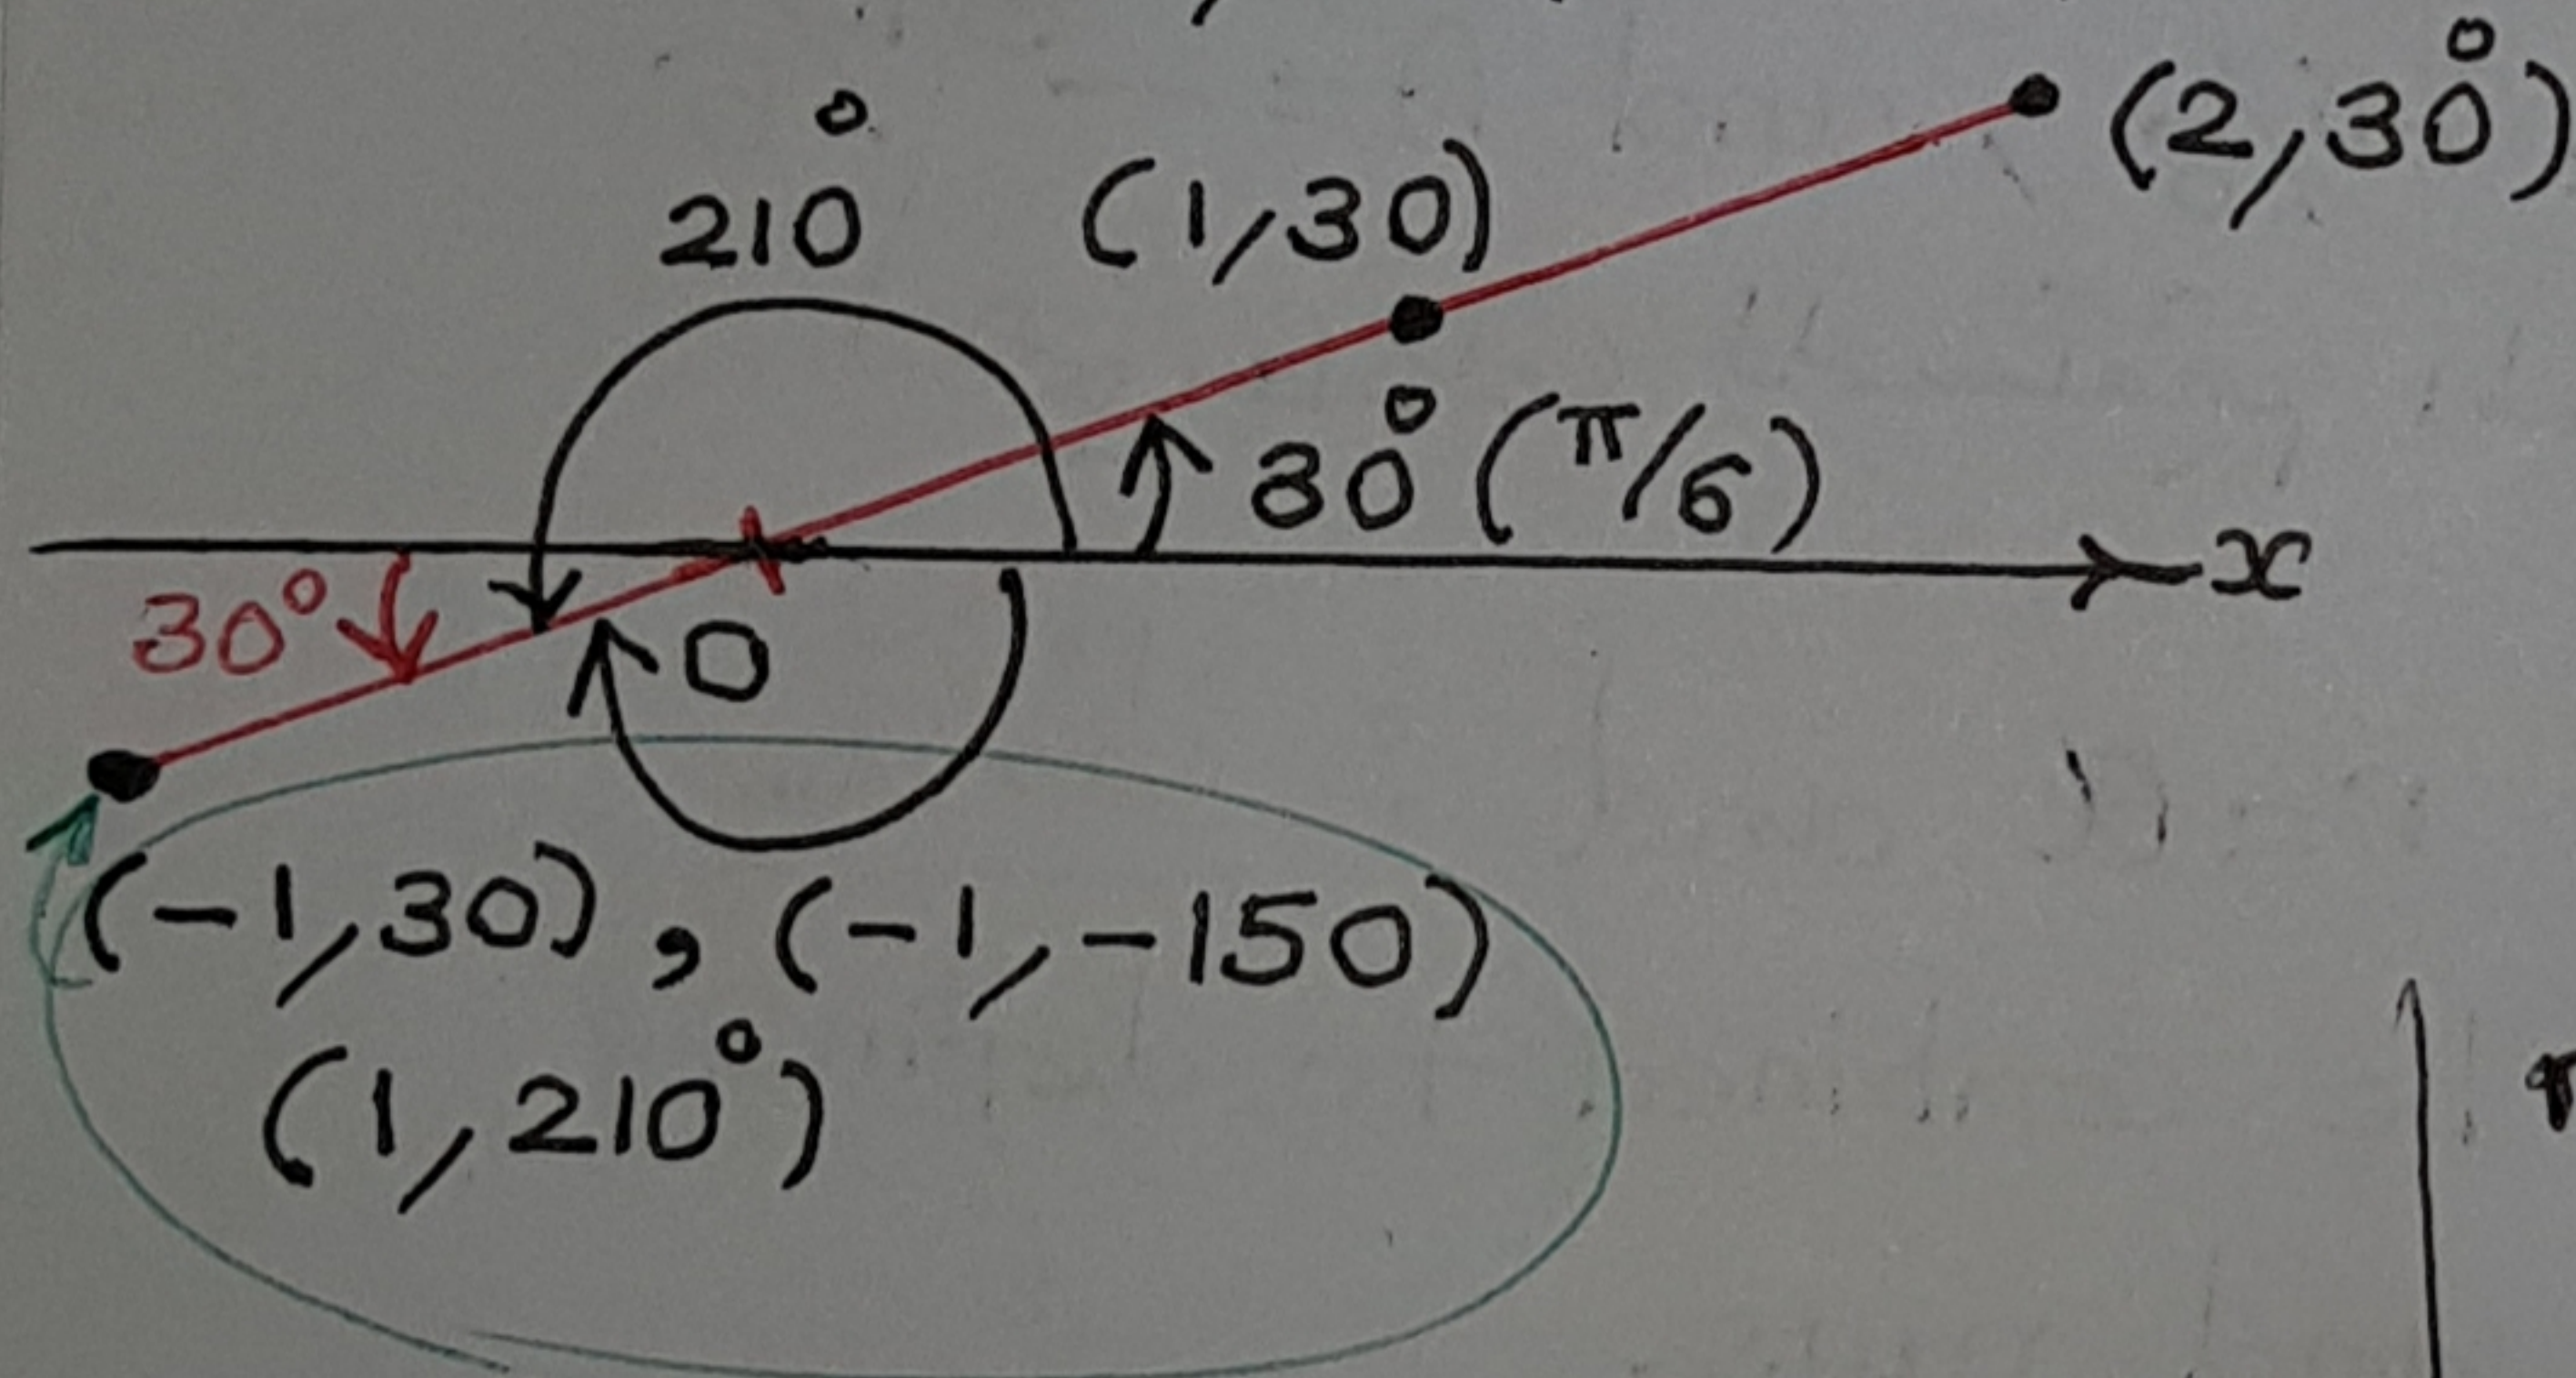 (2,30°)
210°
(1,30)
30° (π/6)
x
30°
O
(-1,30), (-1,-150)
(1,210°)